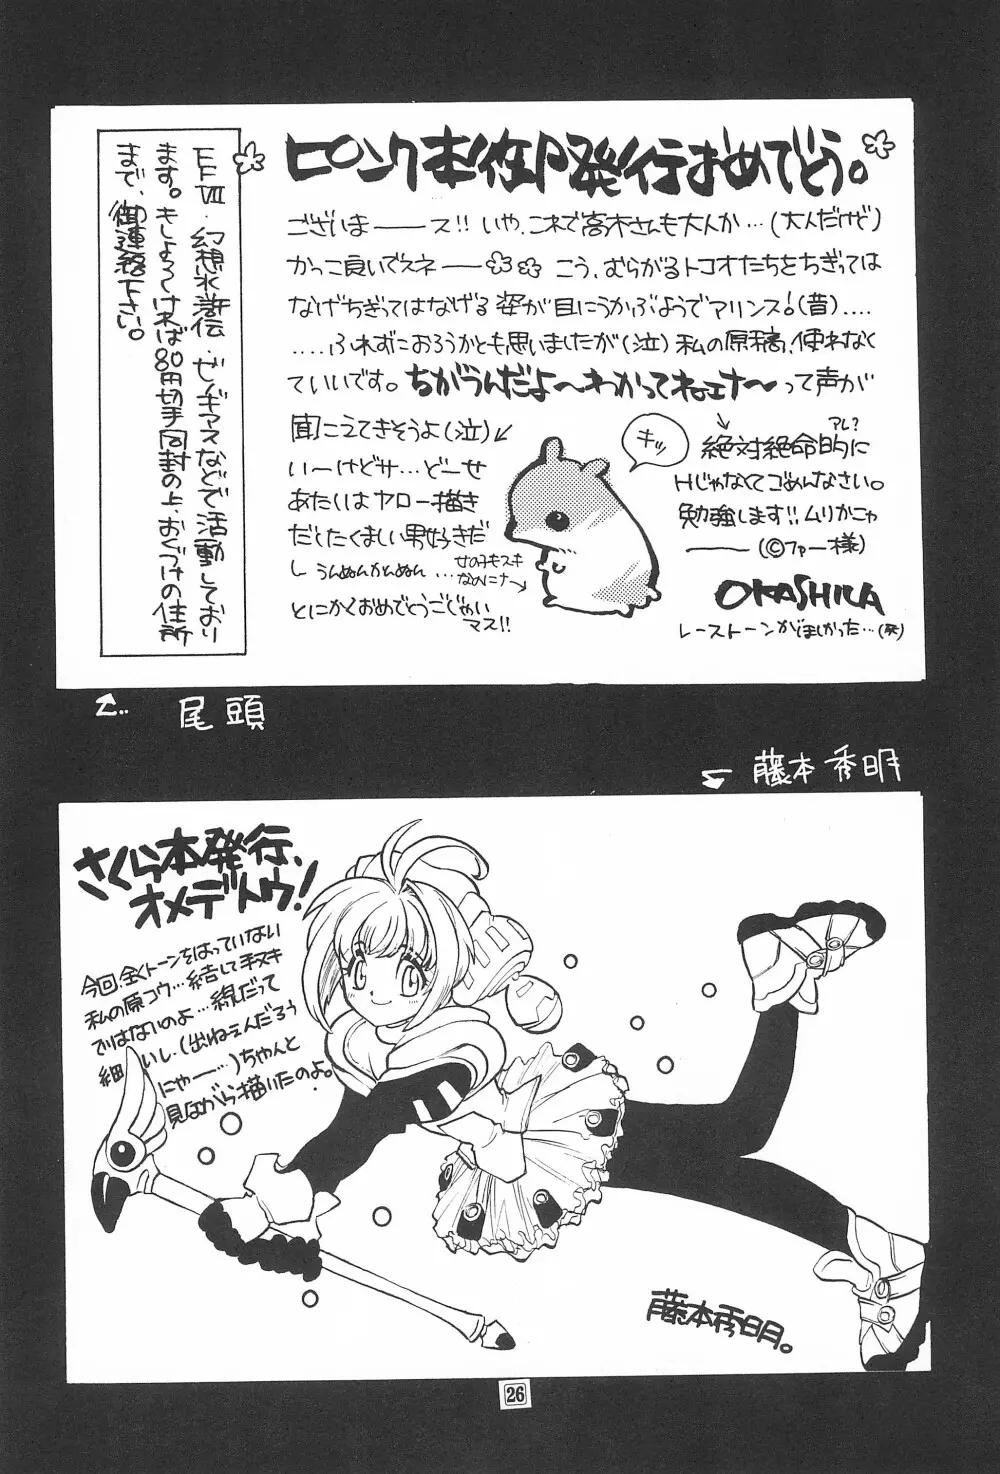 ピンク本(在)P発行おめでとう。
ございま――ス!! いや、これで高木さんも大人か…(大人だけど)
かっこ良いでスネ―― こう、むらがるトコオたちをちぎっては
なげちぎってはなげる姿が目にうかぶようでアリンス!(昔)....
....ふれずにおろうかとも思いましたが(泣)私の原稿、使わなく
ていいです。ちがうんだよ〜わかってネェナ〜って声が
聞こえてきそうよ(泣)
い〜けどサ…ど〜せ
あたいはヤロー描き
だとたくましい男好きだ
し うんぬんかんぬん…
女の子もスキ
なのにナ→
とにかくおめでとうごじゃい
マス!!
キッ
アレ?
絶対絶命的に
Hじゃなくてごめんなさい。
勉強します!! ムリかニャ
――(©ファー様)
OKASHILA
レーストーンがほしかった…(死)
FFⅦ・幻想水滸伝・ゼノギアスなどで活動しており
ます。もしよろしければ80円切手同封の上、おくづけの住所
まで、御連絡下さい。
尾頭
藤本秀明
さくら本発行、
オメデトウ!
今回、全くトーンをはっていない
私の原コウ…結して手ヌキ
ではないのよ…線だって
細いし、(出ねェんだろう
にゃー…)ちゃんと
見ながら描いたのよ。
藤本秀明。
26